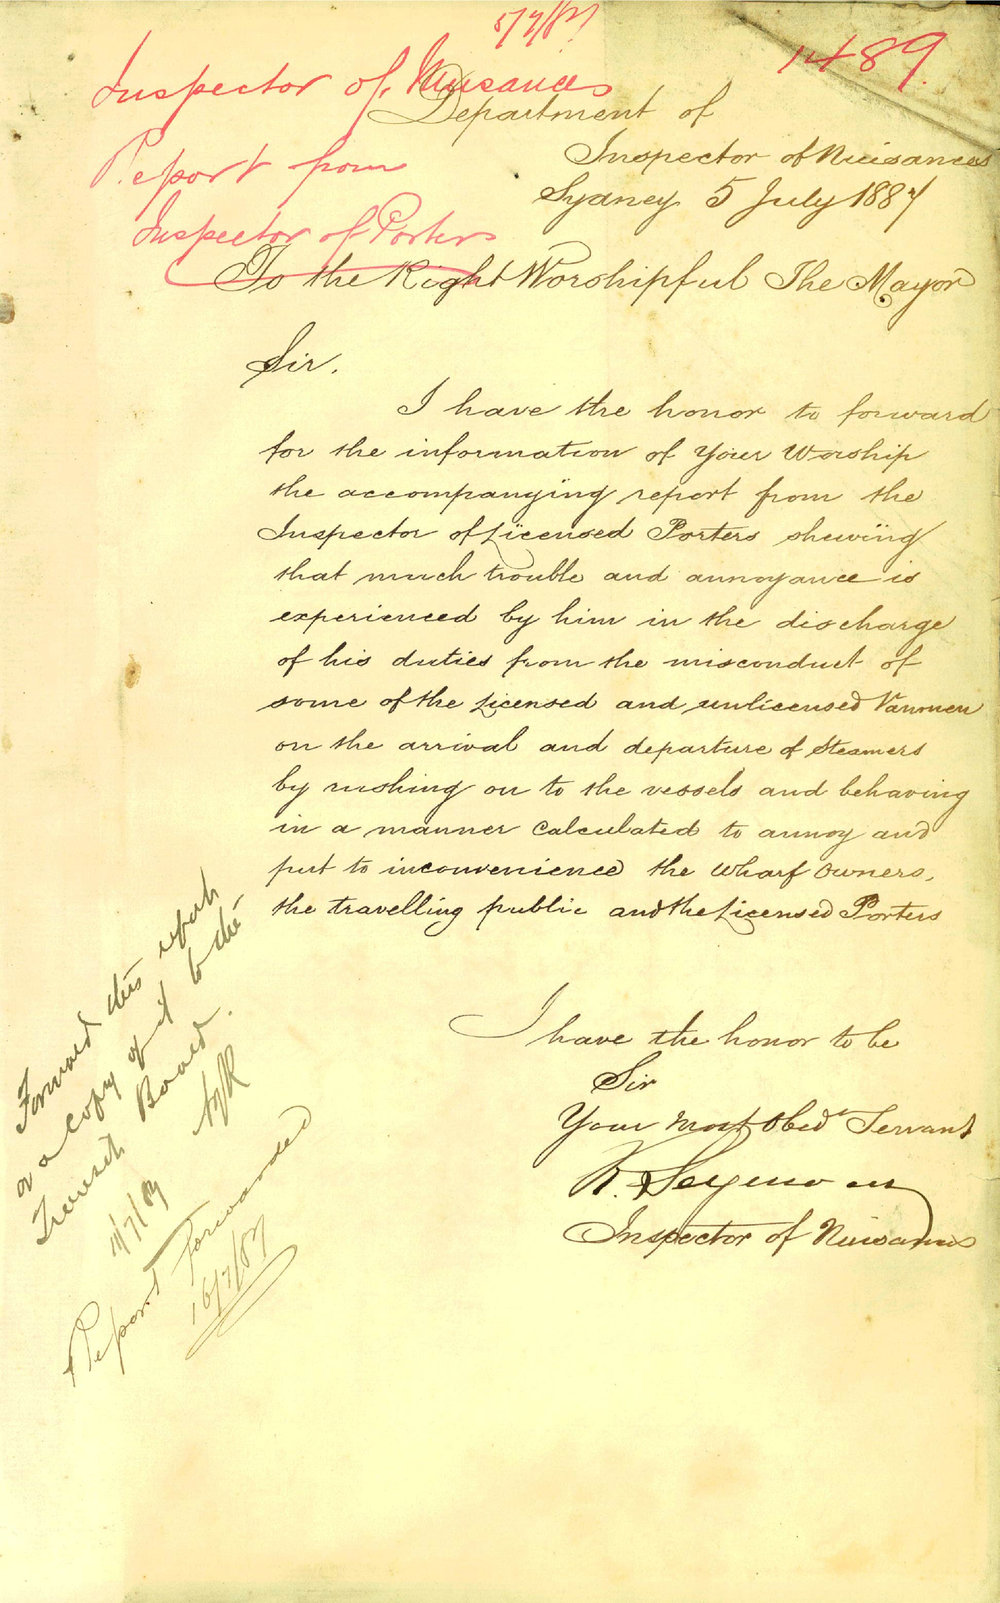 5/7/87
1489
Inspector of Nuisances
Report from
Inspector of Porters
Department of
Inspector of Nuisances
Sydney 5 July 1887
To the Right Worshipful The Mayor
Sir.
I have the honor to forward
for the information of Your Worship
the accompanying report from the
Inspector of Licensed Porters shewing
that much trouble and annoyance is
experienced by him in the discharge
of his duties from the misconduct of
some of the Licensed and unlicensed Vanmen
on the arrival and departure of Steamers
by rushing on to the vessels and behaving
in a manner calculated to annoy and
put to inconvenience the Wharf Owners,
the travelling public and the Licensed Porters
I have the honor to be
Sir
Your most Obed Servant
R. Seymour
Inspector of Nuisances
Forward this report
or a copy of it to the
Transit Board.
11/7/87
Report Forwarded
16/7/87